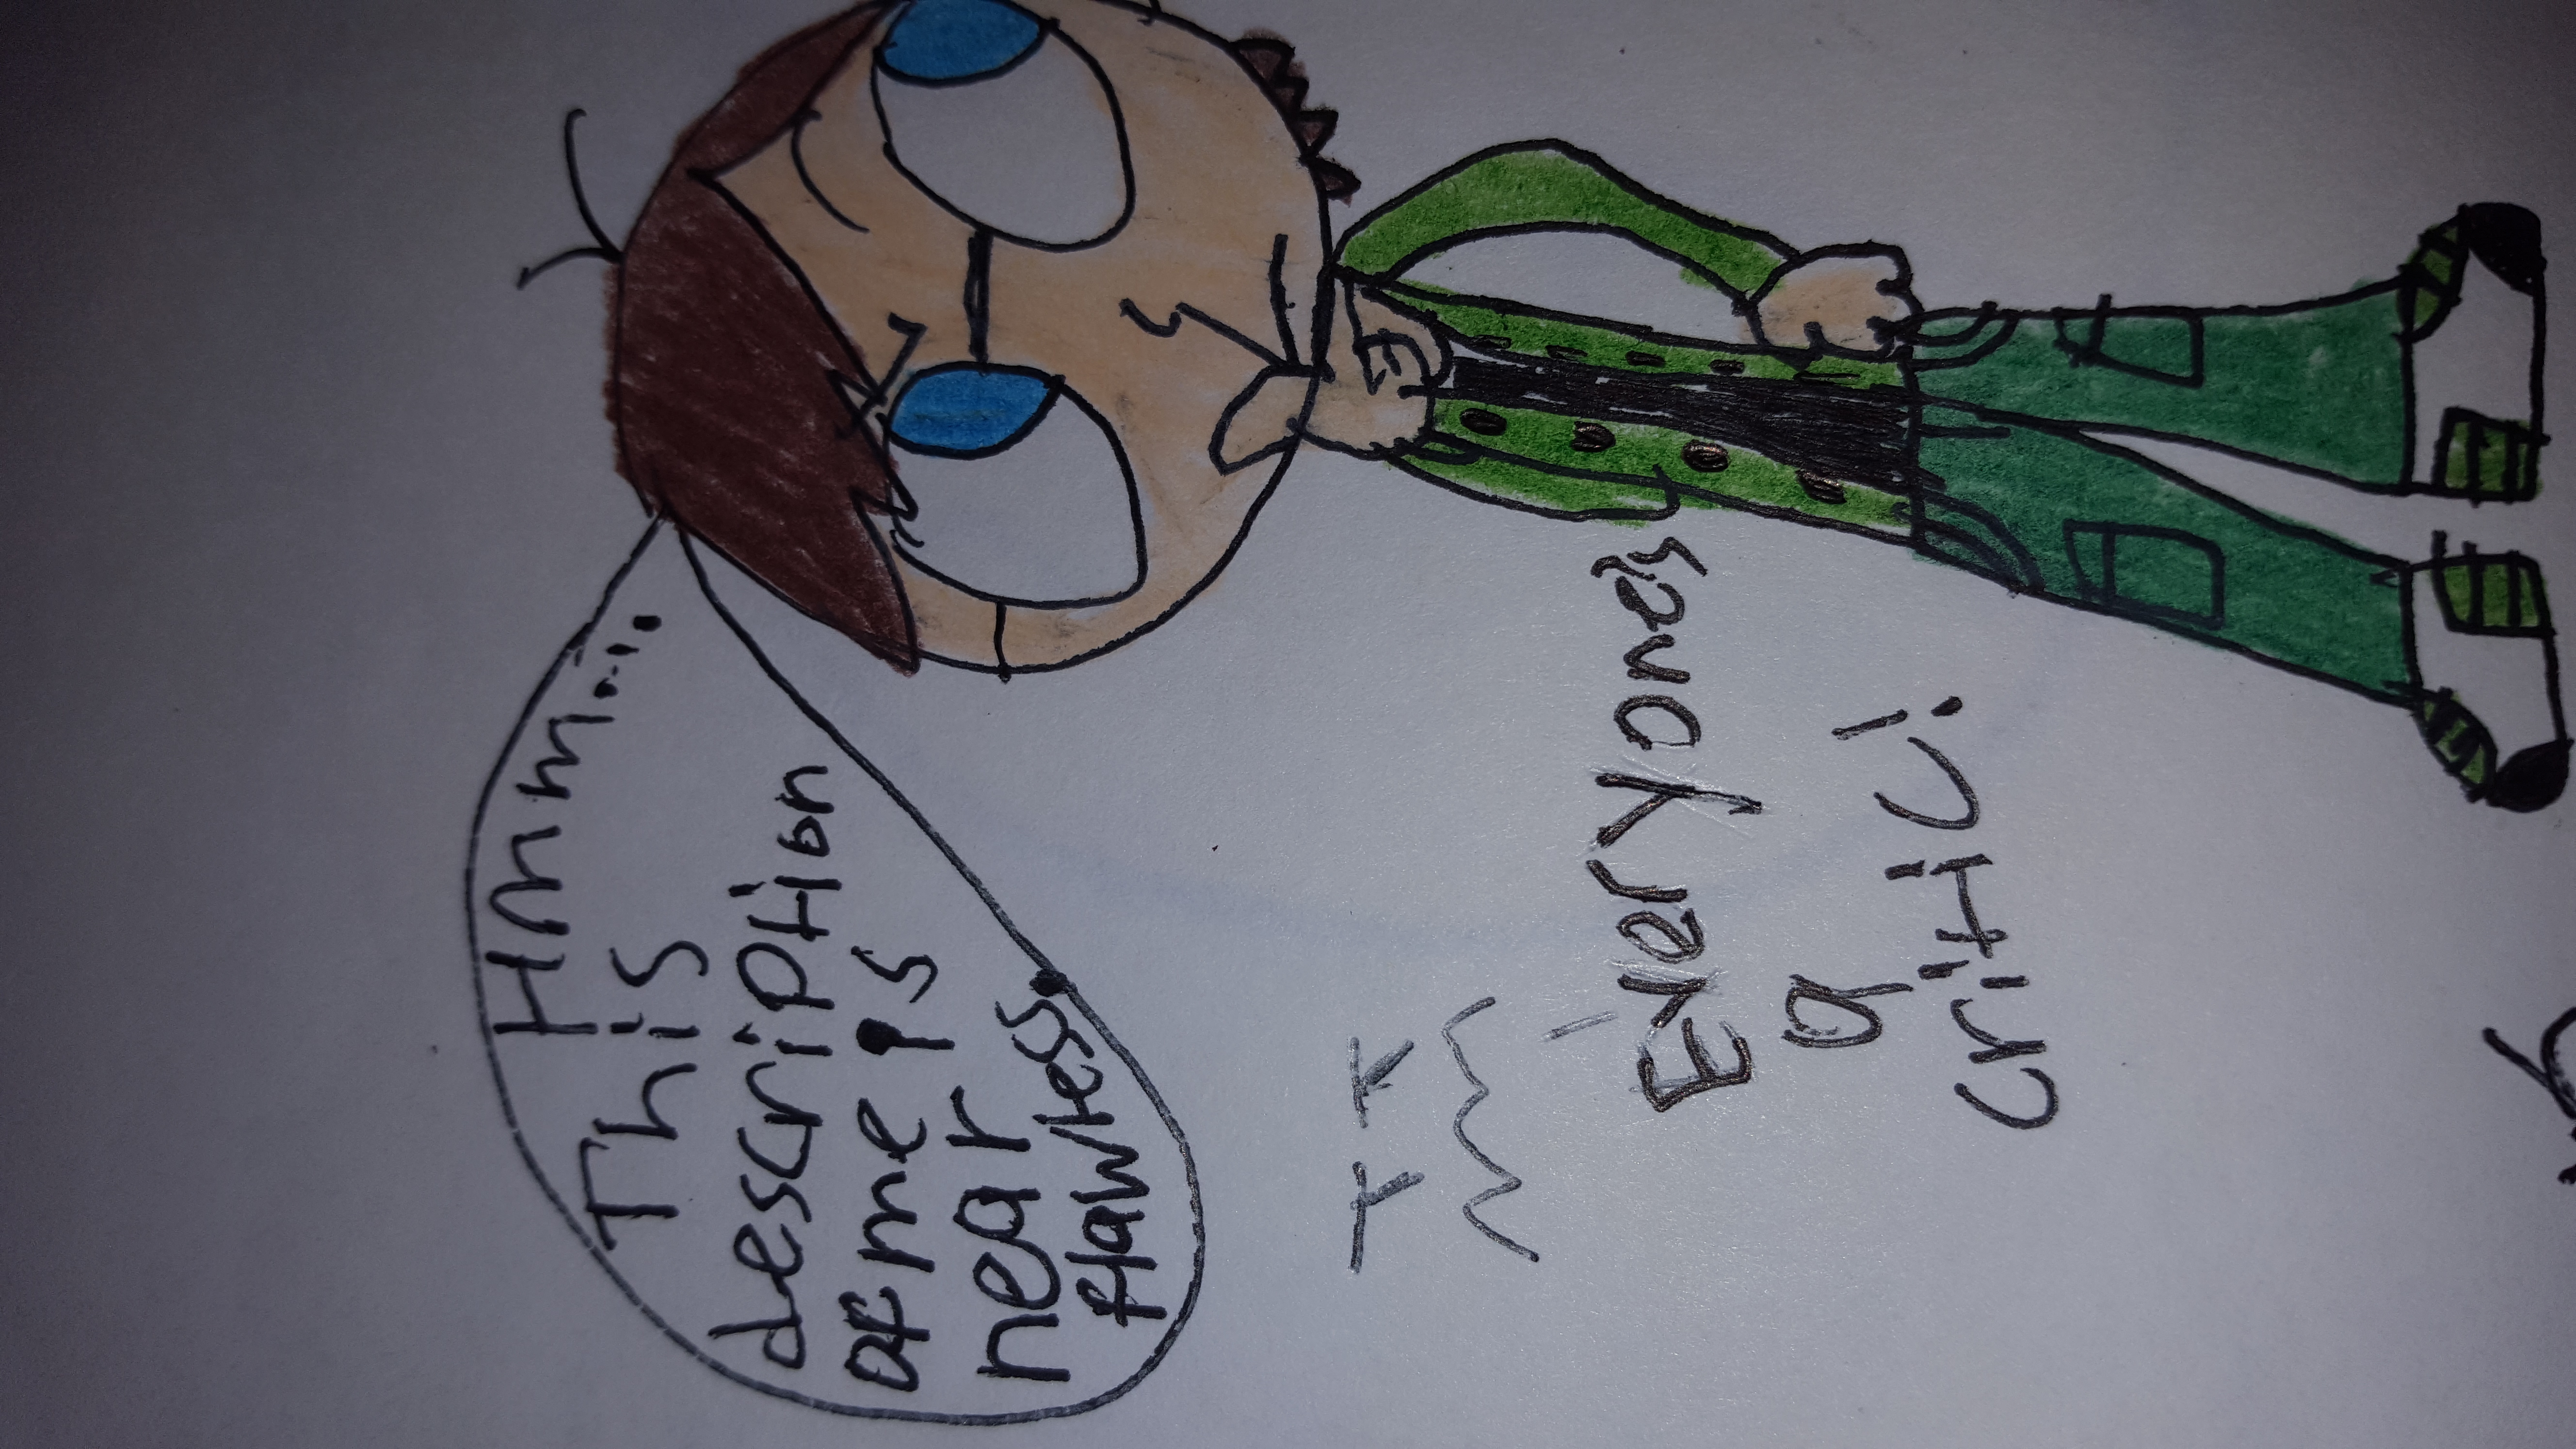 Hmm....
This
description
of me is
near
flawless.
Everyone's
a
critic!